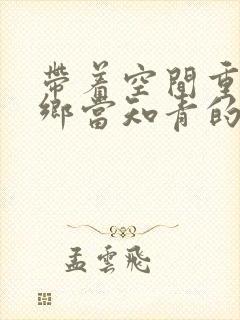 帶着空間重
鄉當知青的
孟雲飛